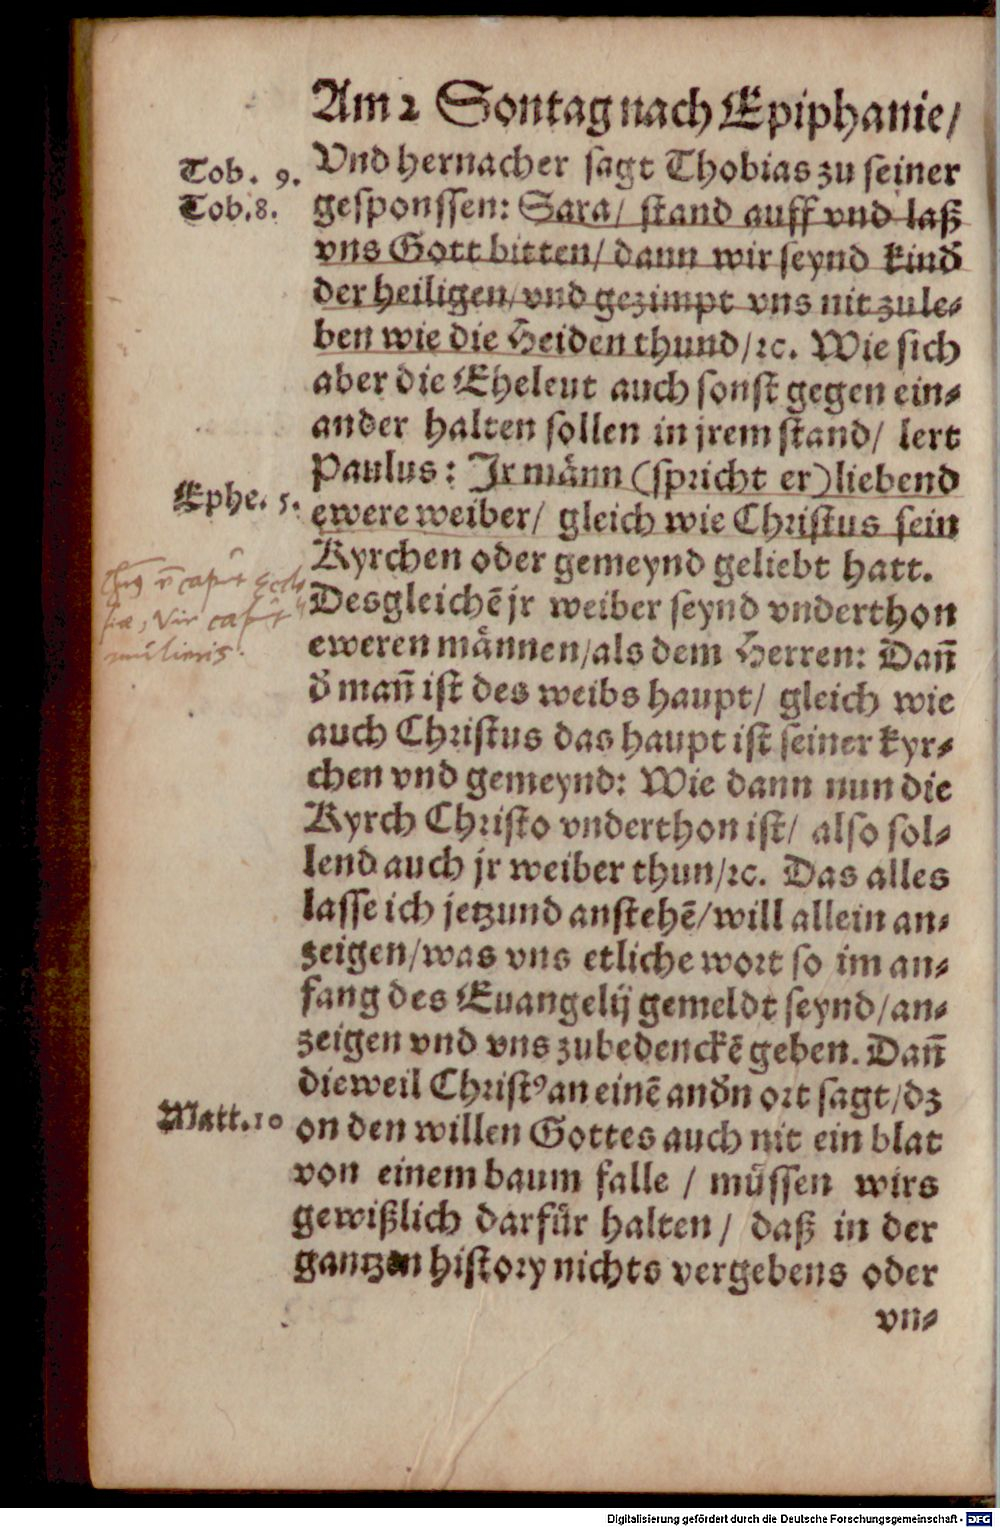 Am 2 Sontag nach Epiphanie/
Tob. 9.
Tob.8.
Vnd hernacher sagt Thobias zu seiner
gesponssen: Sara/ stand auff vnd laß
vns Gott bitten/ dann wir seynd kindð
der heiligen/ vnd gezimpt vns nit zule⸗
ben wie die Heiden thund/ ꝛc. Wie sich
aber die Eheleut auch sonst gegen ein⸗
ander halten sollen in jrem stand/ lert
Paulus: Jr männ (spricht er) liebend
Ephe. 5.
ewere weiber/ gleich wie Christus sein
Kyrchen oder gemeynd geliebt hatt.
Desgleichē jr weiber seynd vnderthon
eweren männen/ als dem Herren: Dañ
ð mañ ist des weibs haupt/ gleich wie
auch Christus das haupt ist seiner kyr⸗
chen vnd gemeynd: Wie dann nun die
Kyrch Christo vnderthon ist/ also sol⸗
lend auch jr weiber thun/ ꝛc. Das alles
lasse ich jetzund anstehē/ will allein an⸗
zeigen/ was vns etliche wort so im an⸗
fang des Euangelij gemeldt seynd/ an⸗
zeigen vnd vns zubedenckē geben. Dañ
dieweil Christꝰ an einē andn ort sagt/ dz
Matt.10
on den willen Gottes auch nit ein blat
von einem baum falle / müssen wirs
gewißlich darfür halten / daß in der
gantzen history nichts vergebens oder
vn⸗
caput
Vir caput
mulieris.
Digitalisierung gefördert durch die Deutsche Forschungsgemeinschaft - DFG